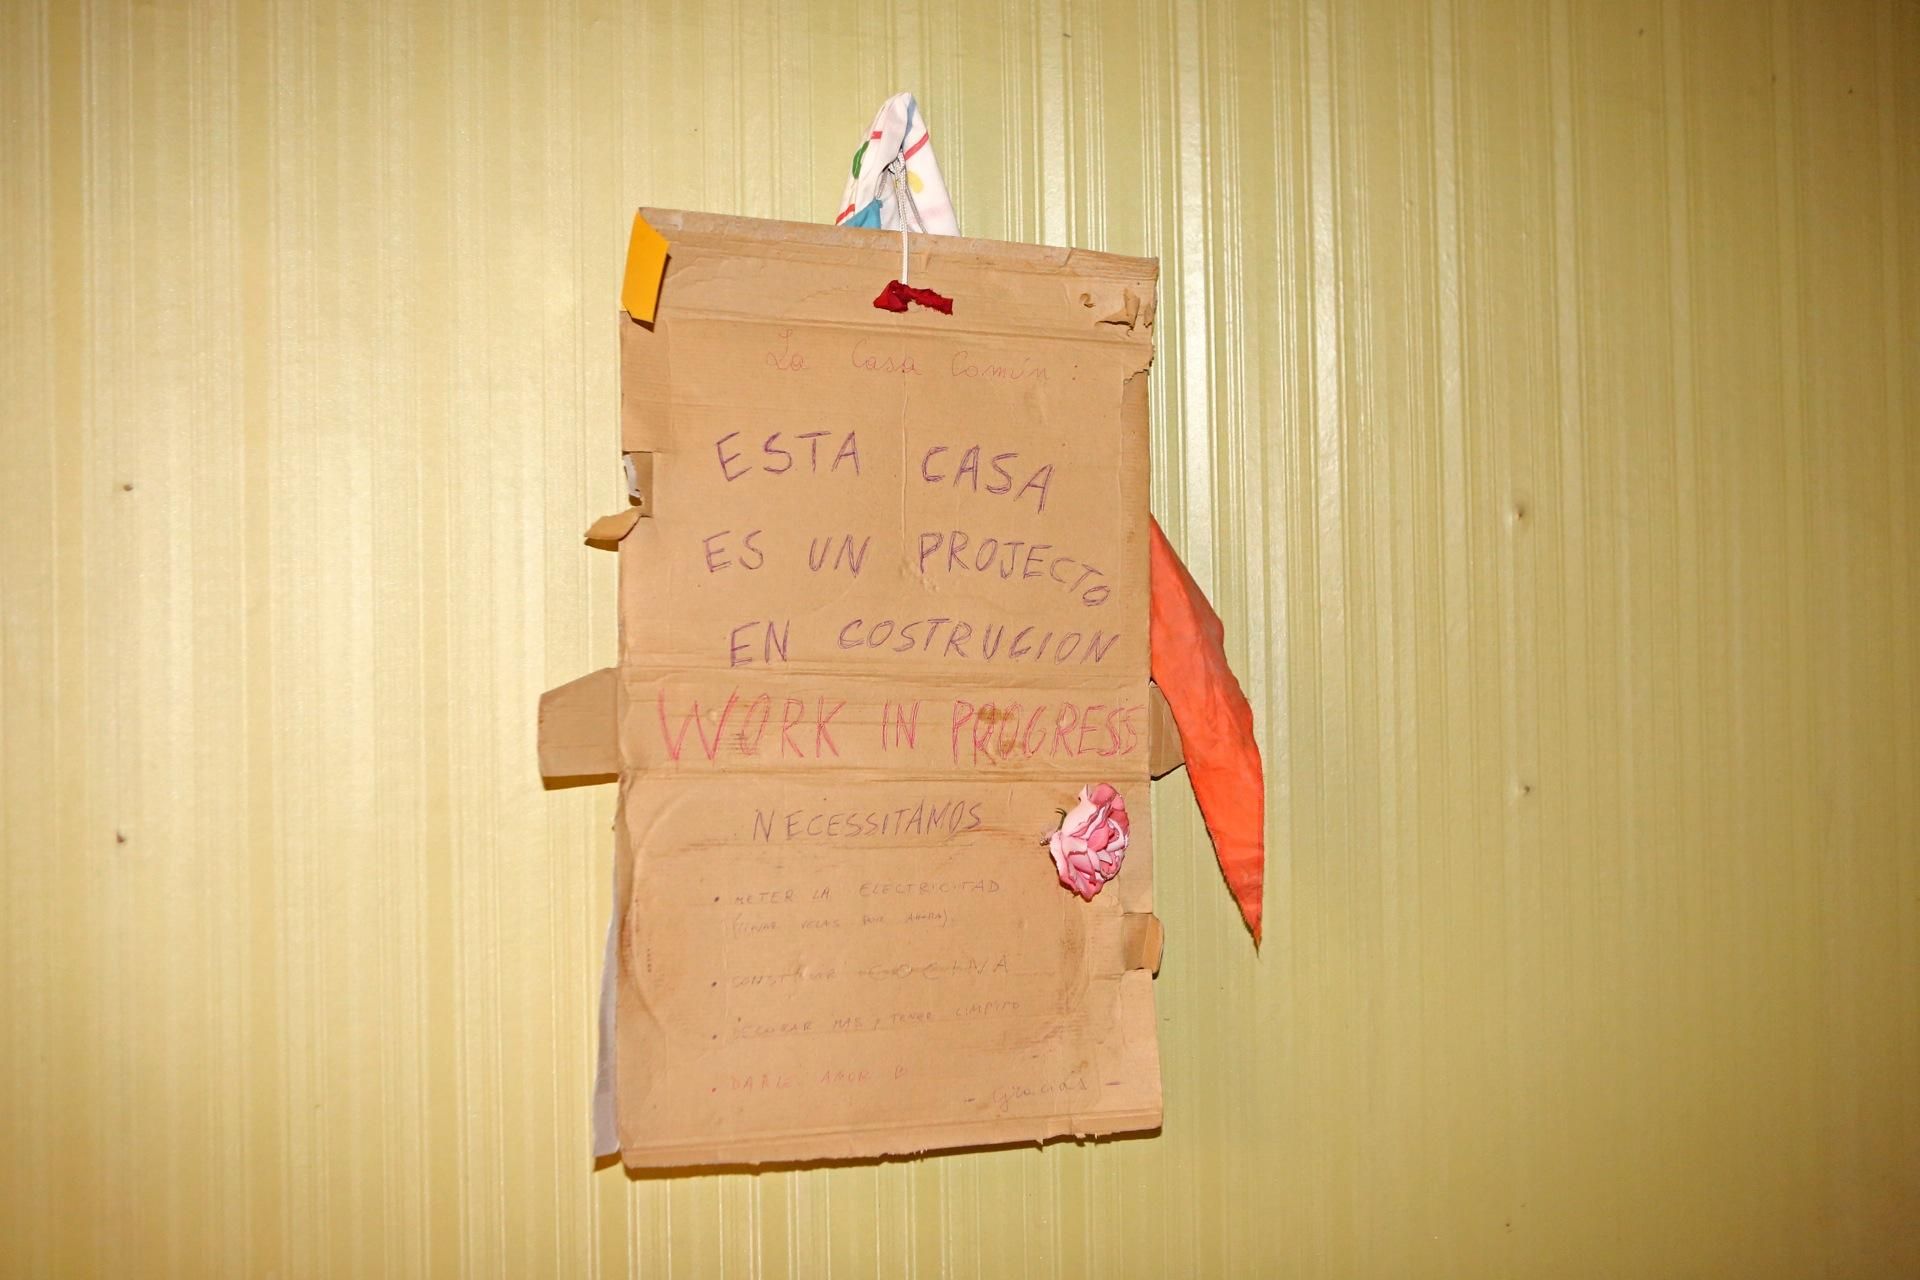 La Casa Común:
ESTA CASA
ES UN PROJECTO
EN COSTRUCION
WORK IN PROGRESS
NECESSITAMOS
• METER LA ELECTRICITAD
VELAS POR AHORA).
• CONSTRUIR COCINA
• DECORAR MAS Y TENER LIMPITO
• DARLE AMOR
- Gracias -